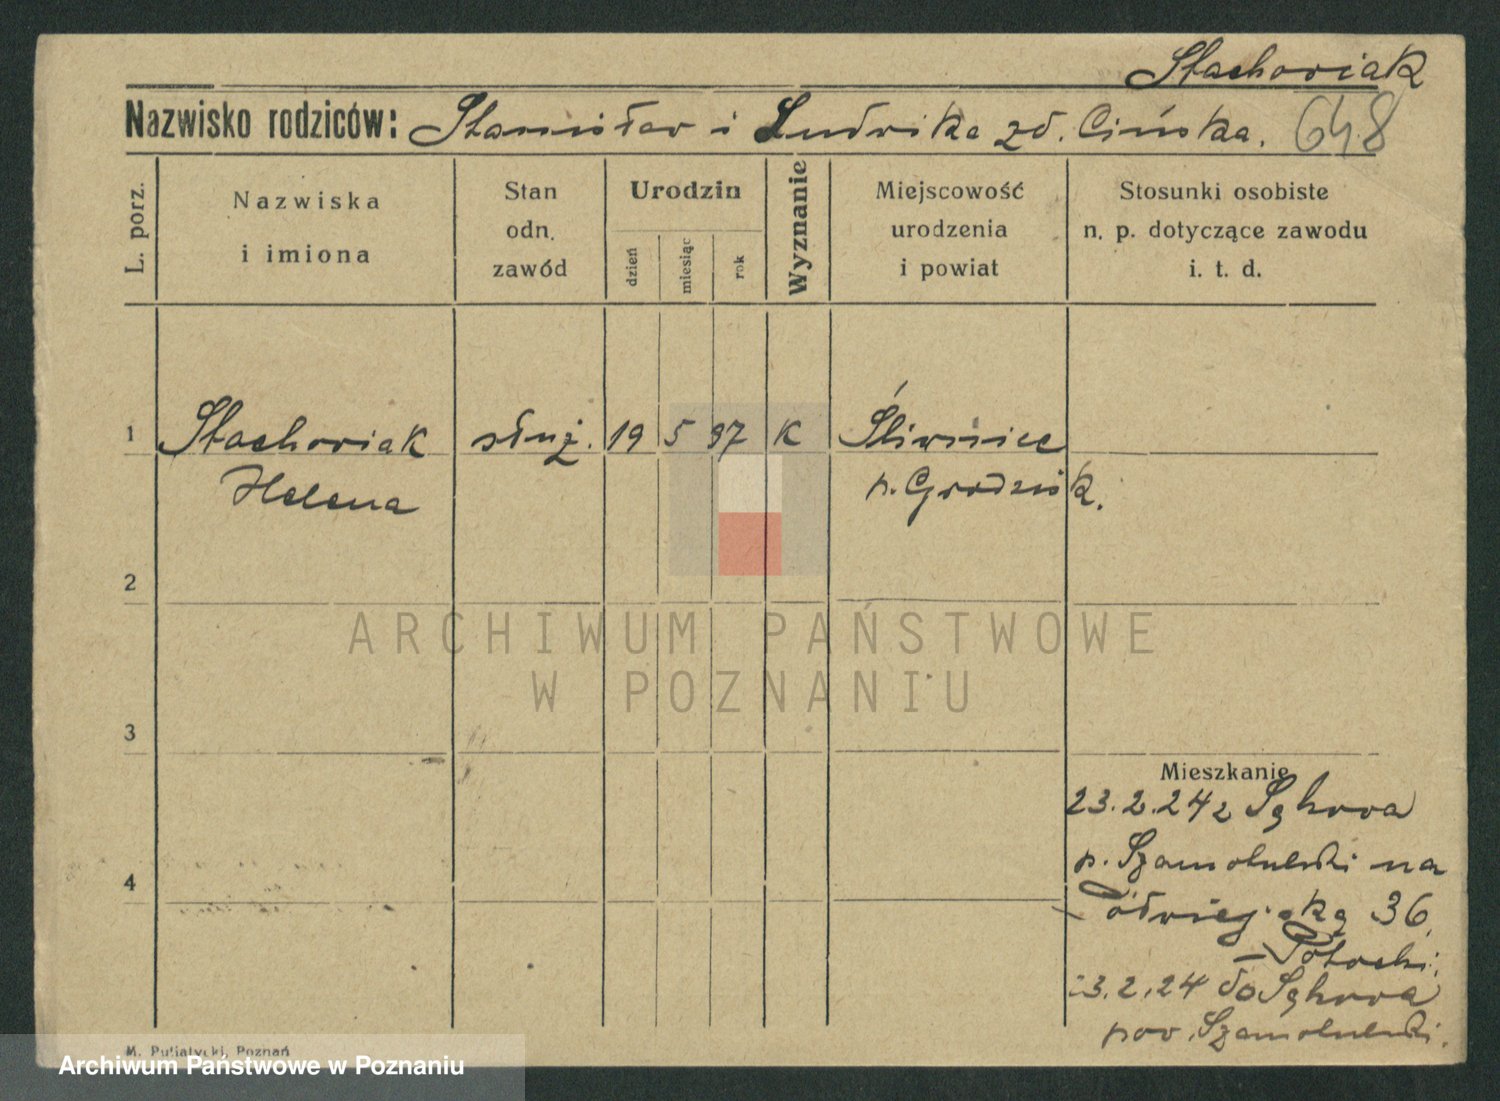 Stachowiak
Nazwisko rodziców: Stanisław i Ludwika zd. Cińska. 648
L. porz.
Nazwiska
i imiona
Stan
odn.
zawód
Urodzin
dzień
miesiąc
rok
Wyznanie
Miejscowość
urodzenia
i powiat
Stosunki osobiste
n. p. dotyczące zawodu
i. t. d.
1 Stachowiak służ. 19 5 97 K Śliwniec
Helena p. Grodzisk.
2
ARCHIWUM PAŃSTWOWE
W POZNANIU
3
Mieszkanie
23.2.24 z Sękowa
p. Szamotulski na
4
Półwiejską 36.
Potocki.
23.2.24 do Sękowa
pow. Szamotulski.
M. Putiatycki, Poznań
Archiwum Państwowe w Poznaniu